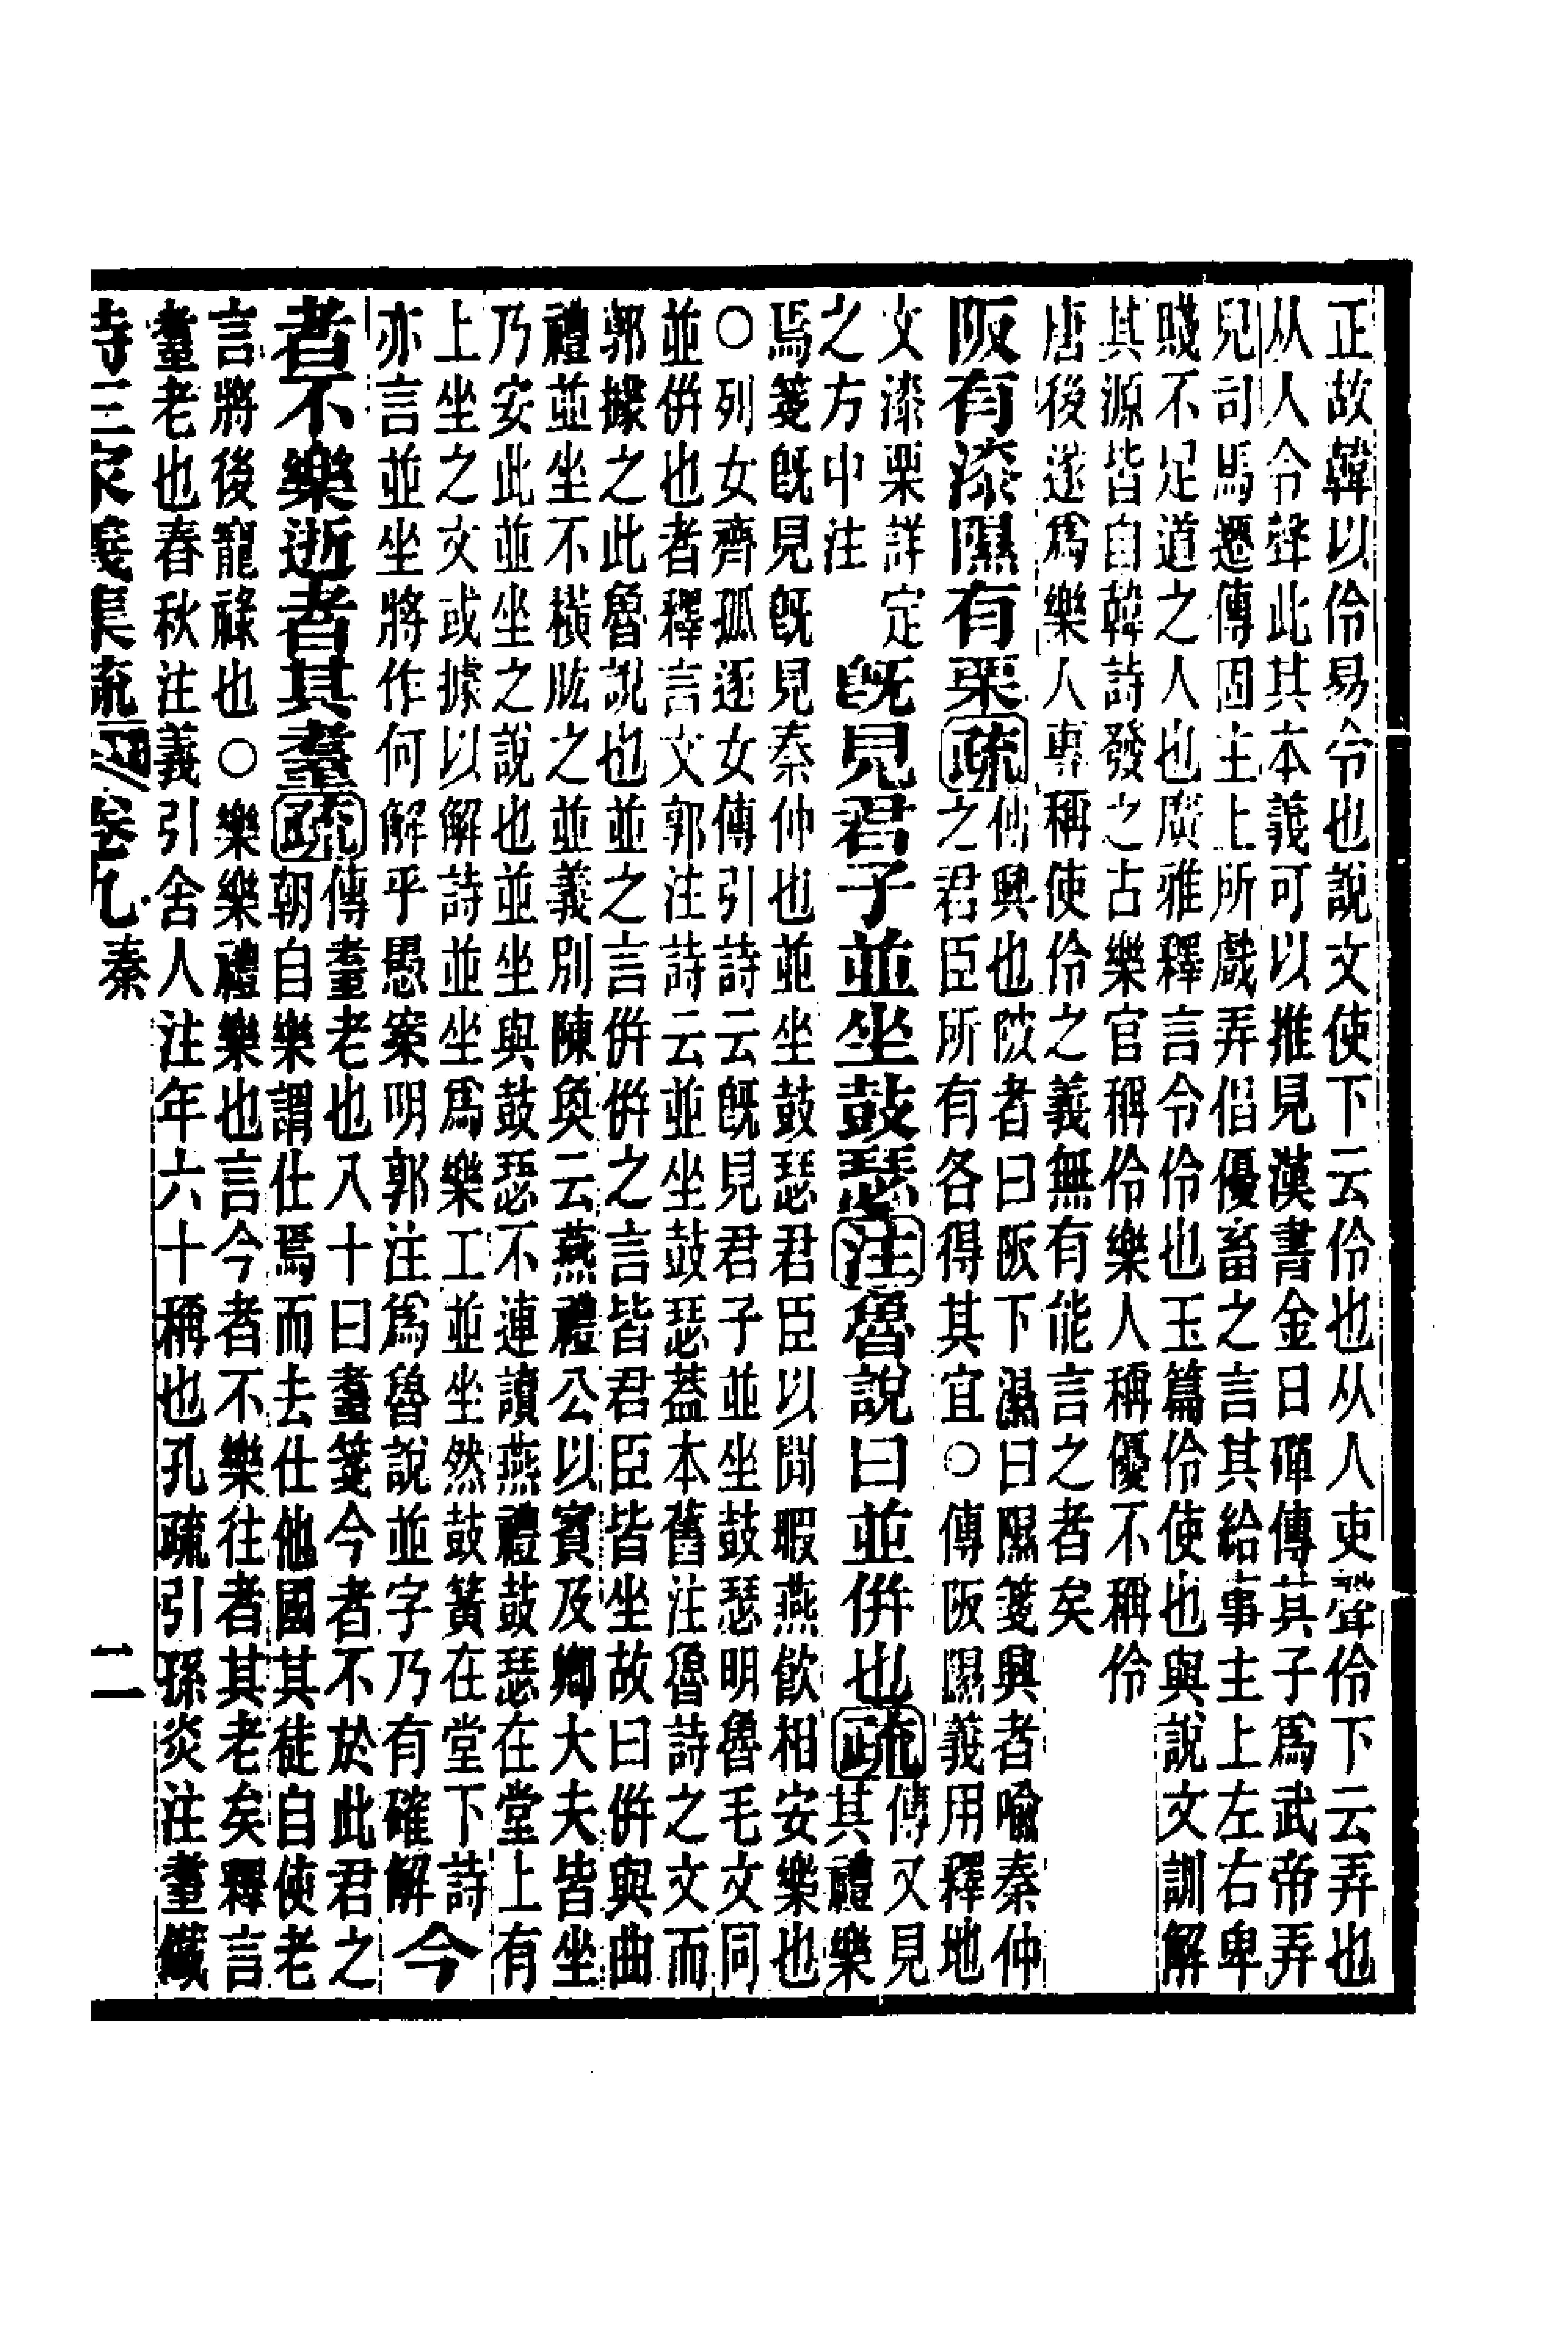 正故韓以伶易令也說文使下云伶也从人吏聲伶下云弄也
从人令聲此其本義可以推見漢書金日磾傳其子爲武帝弄
兒司馬遷傳固主上所戲弄倡優畜之言其給事主上左右卑
賤不足道之人也廣雅釋言令伶也玉篇伶使也與說文訓解
其源皆自韓詩發之古樂官稱伶樂人稱優不稱伶
唐後遂爲樂人專稱使伶之義無有能言之者矣
阪有漆隰有栗疏
傳興也陂者曰阪下濕曰隰箋興者喻秦仲
之君臣所有各得其宜○傳阪隰義用釋地
文漆栗詳定
之方中注
既見君子並坐鼓瑟注魯說曰並併也疏
傳又見
其禮樂
焉箋既見既見秦仲也並坐鼓瑟君臣以閒暇燕飲相安樂也
○列女齊孤逐女傳引詩云既見君子並坐鼓瑟明魯毛文同
並併也者釋言文郭注詩云並坐鼓瑟蓋本舊注魯詩之文而
郭據之此魯說也並之言併併之言皆君臣皆坐故曰併與曲
禮並坐不橫肱之並義別陳奐云燕禮公以賓及卿大夫皆坐
乃安此並坐之說也並坐與鼓瑟不連讀燕禮鼓瑟在堂上有
上坐之文或據以解詩並坐爲樂工並坐然鼓簧在堂下詩
亦言並坐將作何解乎愚案明郭注爲魯說並字乃有確解
今
者不樂逝者其耋疏
傳耋老也八十曰耋箋今者不於此君之
朝自樂謂仕焉而去仕他國其徒自使老
言將後寵祿也○樂樂禮樂也言今者不樂往者其老矣釋言
耋老也春秋注義引舍人注年六十稱也孔疏引孫炎注耋鐵
詩三家義集疏 卷九 秦 二